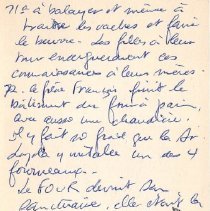 71° à balayer et même à
traire les vaches et faire
le beurre. Les filles à leur
tour enseignèrent ces
connaissances à leurs mères.
72. le frère François finit le
bâtiment du four à pain,
avec aussi une chaudière.
Il y fait so froid que la Sr.
Loyola y installe un des 4
fourneaux.
Le FOUR devint son
sanctuaire, elle étant la